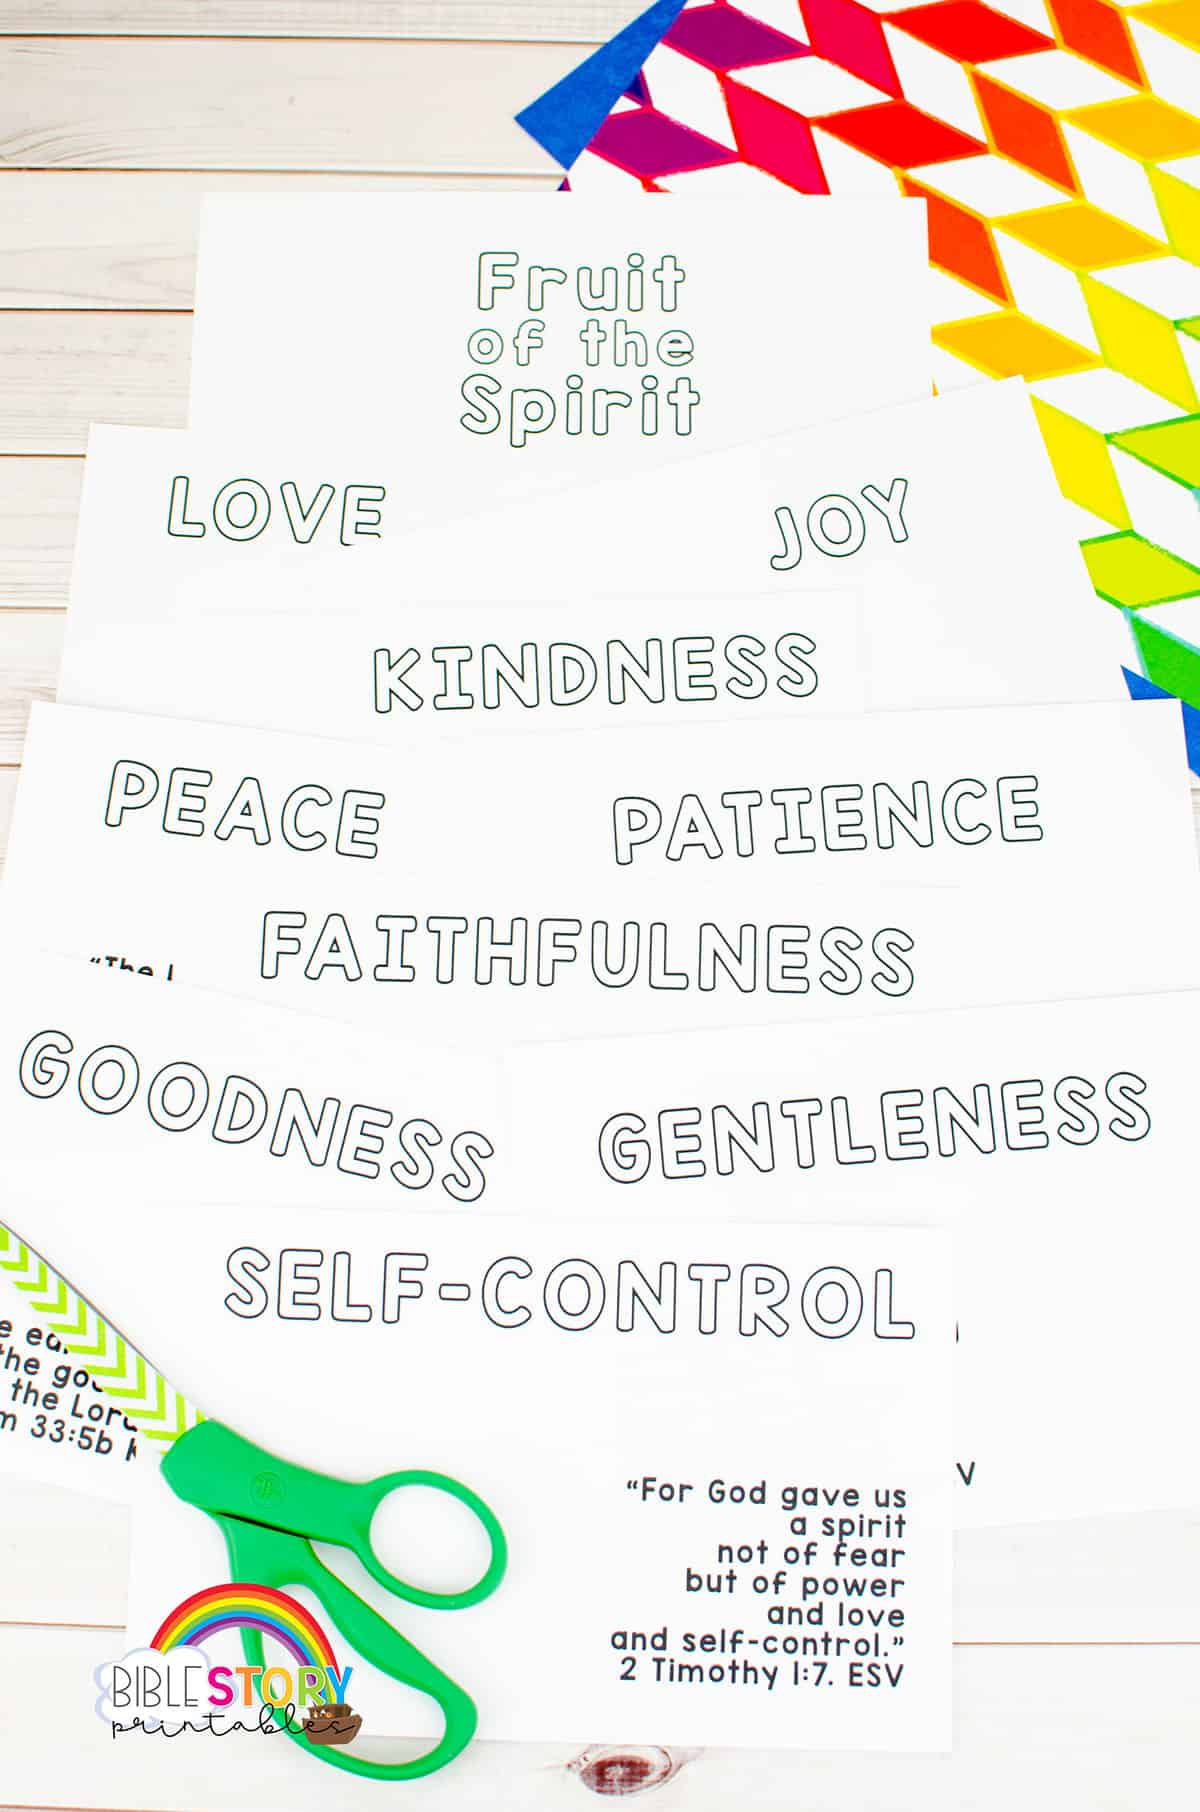 Fruit
of the
Spirit
LOVE
JOY
KINDNESS
PEACE
PATIENCE
"The
FAITHFULNESS
GOODNESS
GENTLENESS
SELF-CONTROL
the
the Lord
33:5b
V
"For God gave us
a spirit
not of fear
but of power
and love
and self-control."
2 Timothy 1:7. ESV
BIBLE STORY
printables